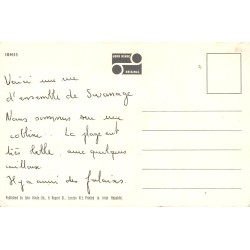 Voici une vue
d'ensemble de Swanage
Nous sommes sur une
colline. La plage est
très belle, avec quelques
cailloux.
Il y a aussi des falaises.
JOHN HINDE
ORIGINAL
Published by John Hinde Ltd.,
London W.1. Printed in Irish Republic.